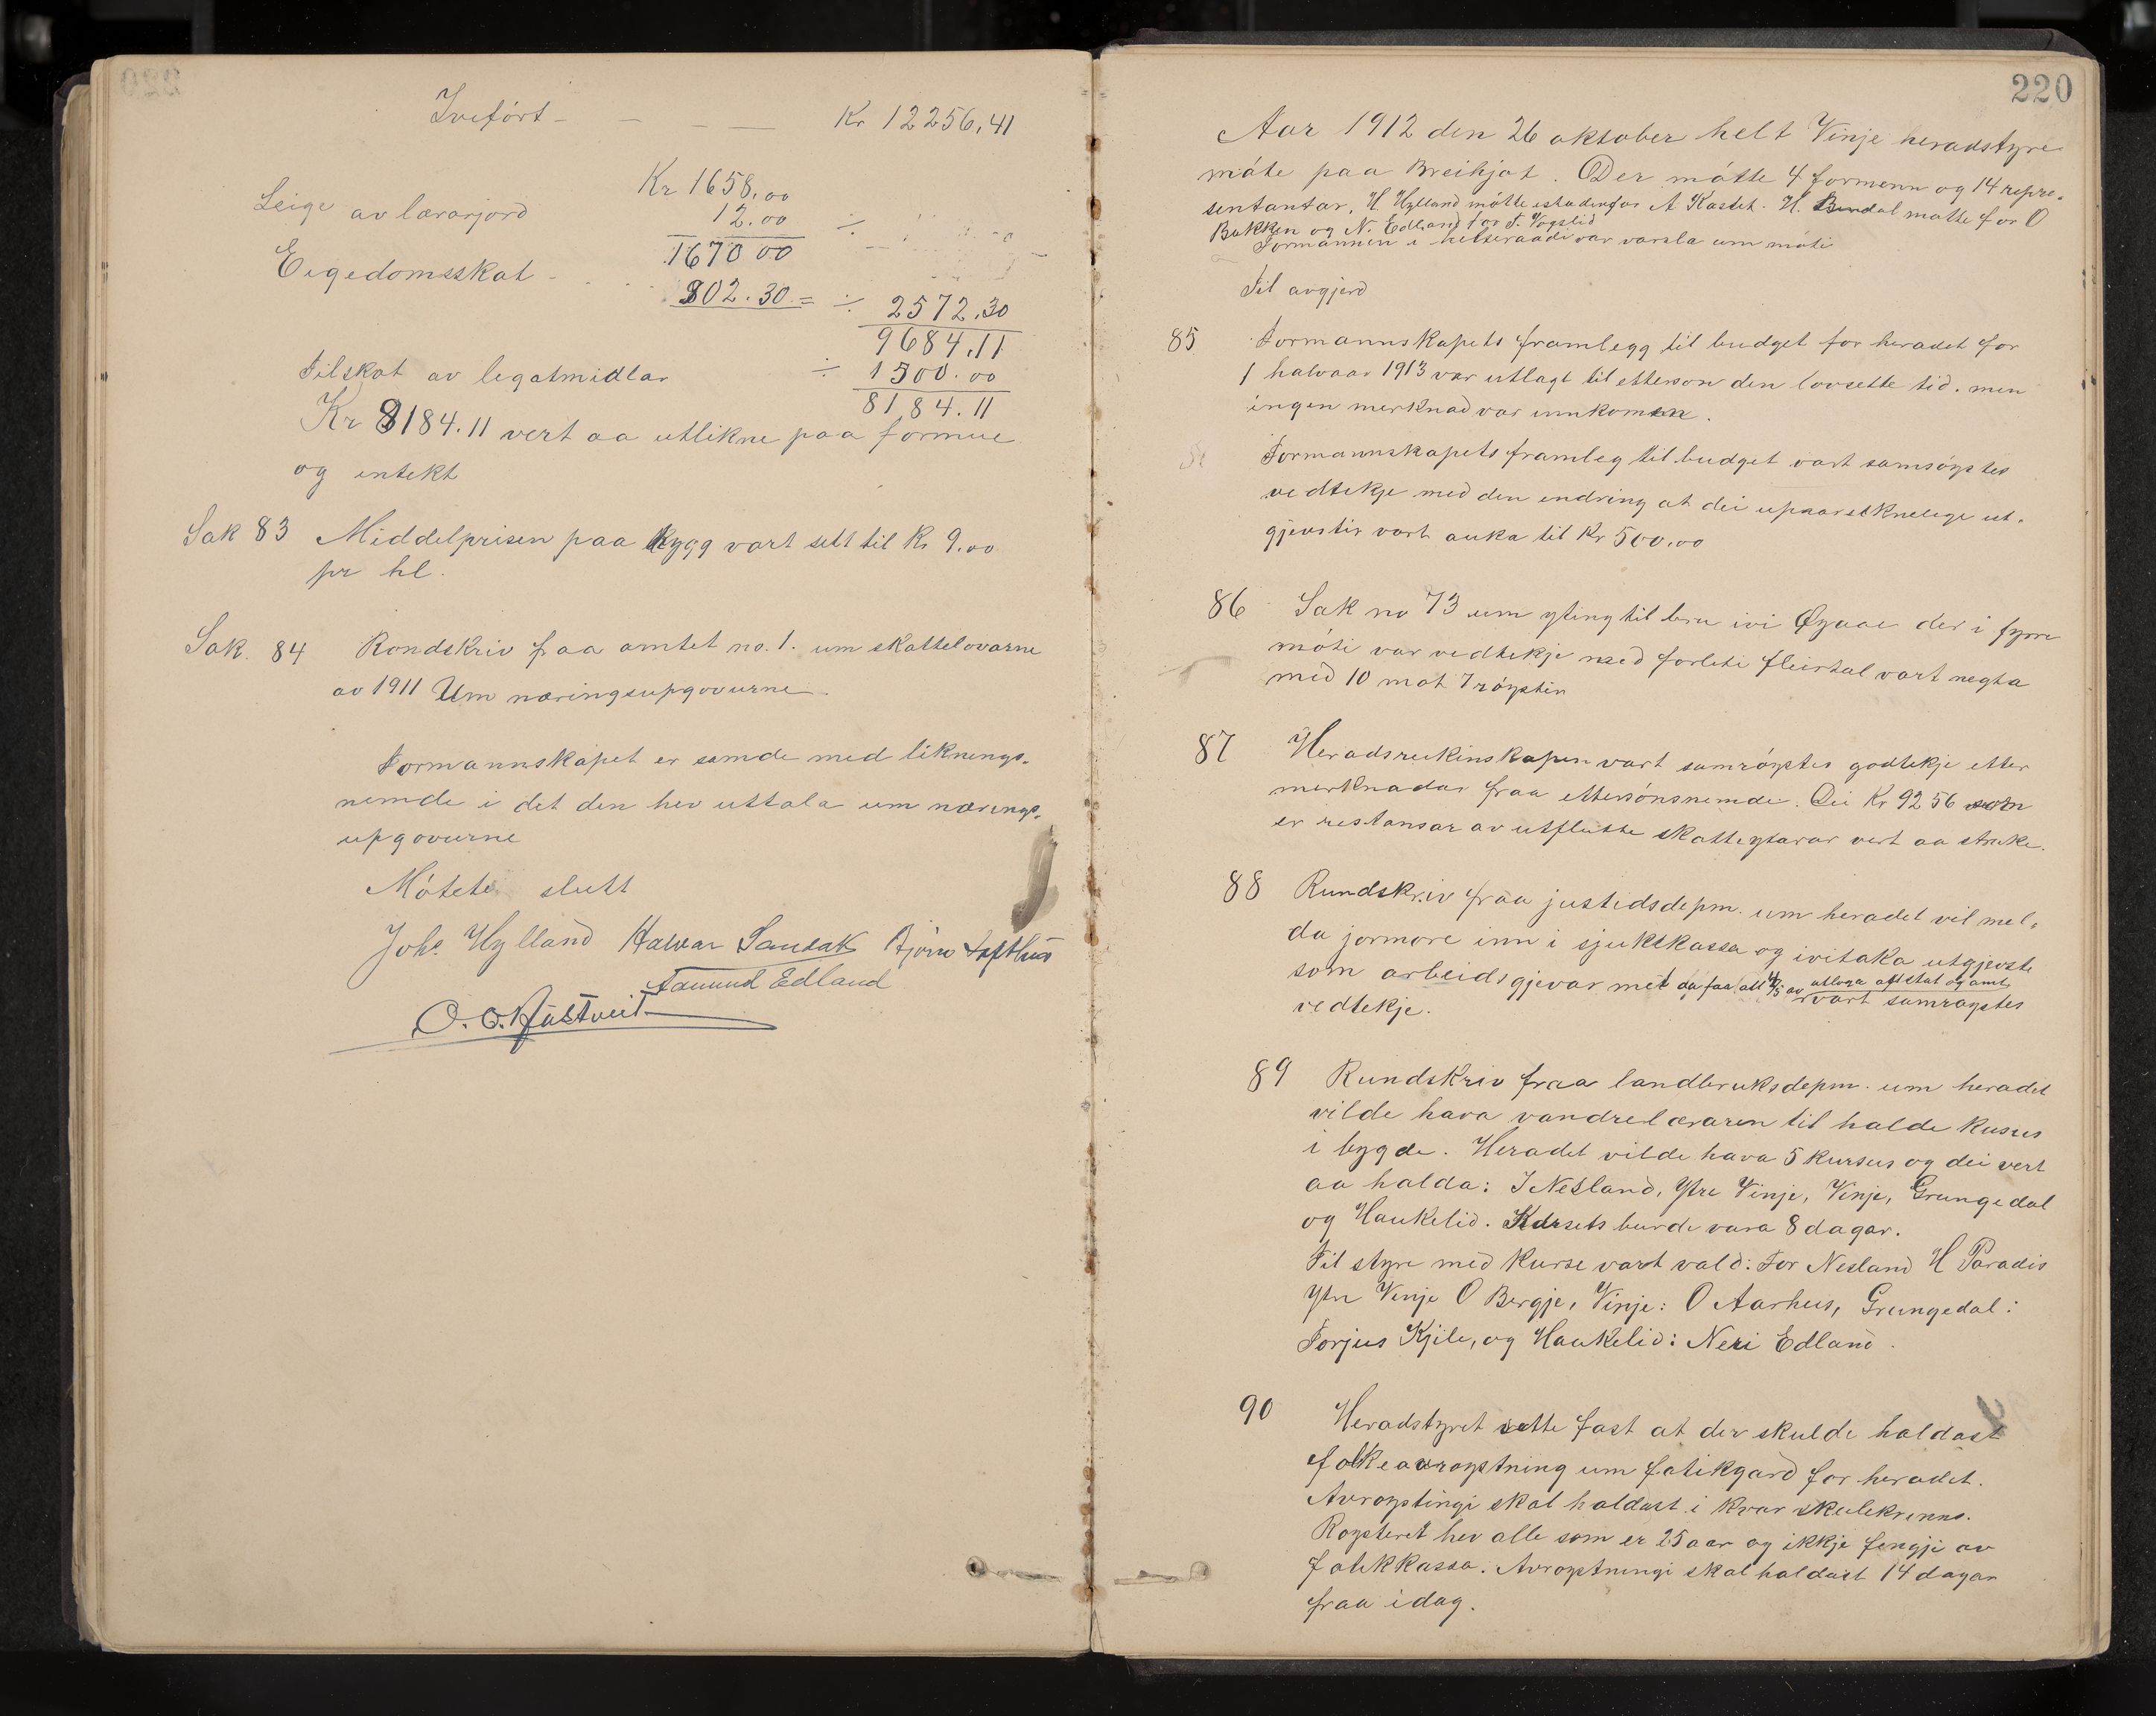 Iveført - - - - Kr 12256,41
Kr 1658,00
Leige av lærarjord 12.00 ÷
1670 00
Eigedomsskat - 902.30 = ÷ 2572,30
9684,11
Tilskot av legatmidlar ÷ 1500.00
8184.11
Kr 8184.11 vert aa utlikne paa formue
og intekt
Sak 83 Middelprisen paa bygg vart sett til Kr 9.00
pr hl.
Sak. 84 Rondskriv fraa amtet no. 1. um skattelovarne
av 1911 Um næringsupgovurne
Formannskapet er samde med liknings-
nemde i det den hev uttala um nærings-
upgovurne
Mótete slutt
Johs. Hylland Halvar Sandak Bjørn Lofthus
Aamund Edland
O. O. Rustveit
220
Aar 1912 den 26 oktober helt Vinje heradstyre
móte paa Breihjot. Der mótte 4 formenn og 14 repre-
sentantar. H. Hylland mótte istadenfor A Kastet. H. Bendal møtte for O
Bakken og N. Edland for T. Vågslid
Formannen i helseraadi var varsla um móti
Til avgjerd
85 Formannskapets framlegg til budget for heradet for
1 halvaar 1913 var utlagt til ettersyn den lovsette tid. men
ingen merknad var innkomen.
Formannskapets framleg til budget vart samróystes
vedtekje med den endring at dei upaareknelege ut-
gjevstir vart auka til Kr 500,00
86 Sak no 73 um yting til bru ivi Øyaae der i fyrre
móti var vedtekje med forleti fleirtal vart negta
med 10 mot 7 róystir
87 Heradsreikinskapen vart samróystes godtekje etter
merknadar fraa ettersónsnemde. Dei Kr 92 56 som
er restansar av utflutte skatteytarar vert aa stryke.
88 Rundskriv fraa justidsdepm. um heradet vil mel-
da jormore inn i sjukekassa og ivitaka utgjevste
som arbeidsgjevar met da faa att 4/5 av utlogа att stat og amt,
vart samrøystes
vedtekje.
89 Rundskriv fraa landbruksdepm. um heradet
vilde hava vandrelæraren til halde kusus
i bygde. Heradet vilde hava 5 kursus og dei vert
aa halda: I Nesland, Ytre Vinje, Vinje, Grungedal
og Haukelid. Kursets burde vara 8 dagar.
Til styre med kurse vart vald: For Nesland H Paradis
Ytre Vinje O Bergje, Vinje: O Aarhus, Grungedal:
Torjus Kjile, og Haukelid: Neri Edland.
90 Heradstyret sette fast at der skulde haldast
folkeavrøystning um fatikgard for heradet.
Avrøystingi skal haldast i kvar skulekrinns.
Røysterett hev alle som er 25 aar og ikkje fengje av
fatikkassa. Avrøystningi skal haldast 14 dagar
fraa idag.